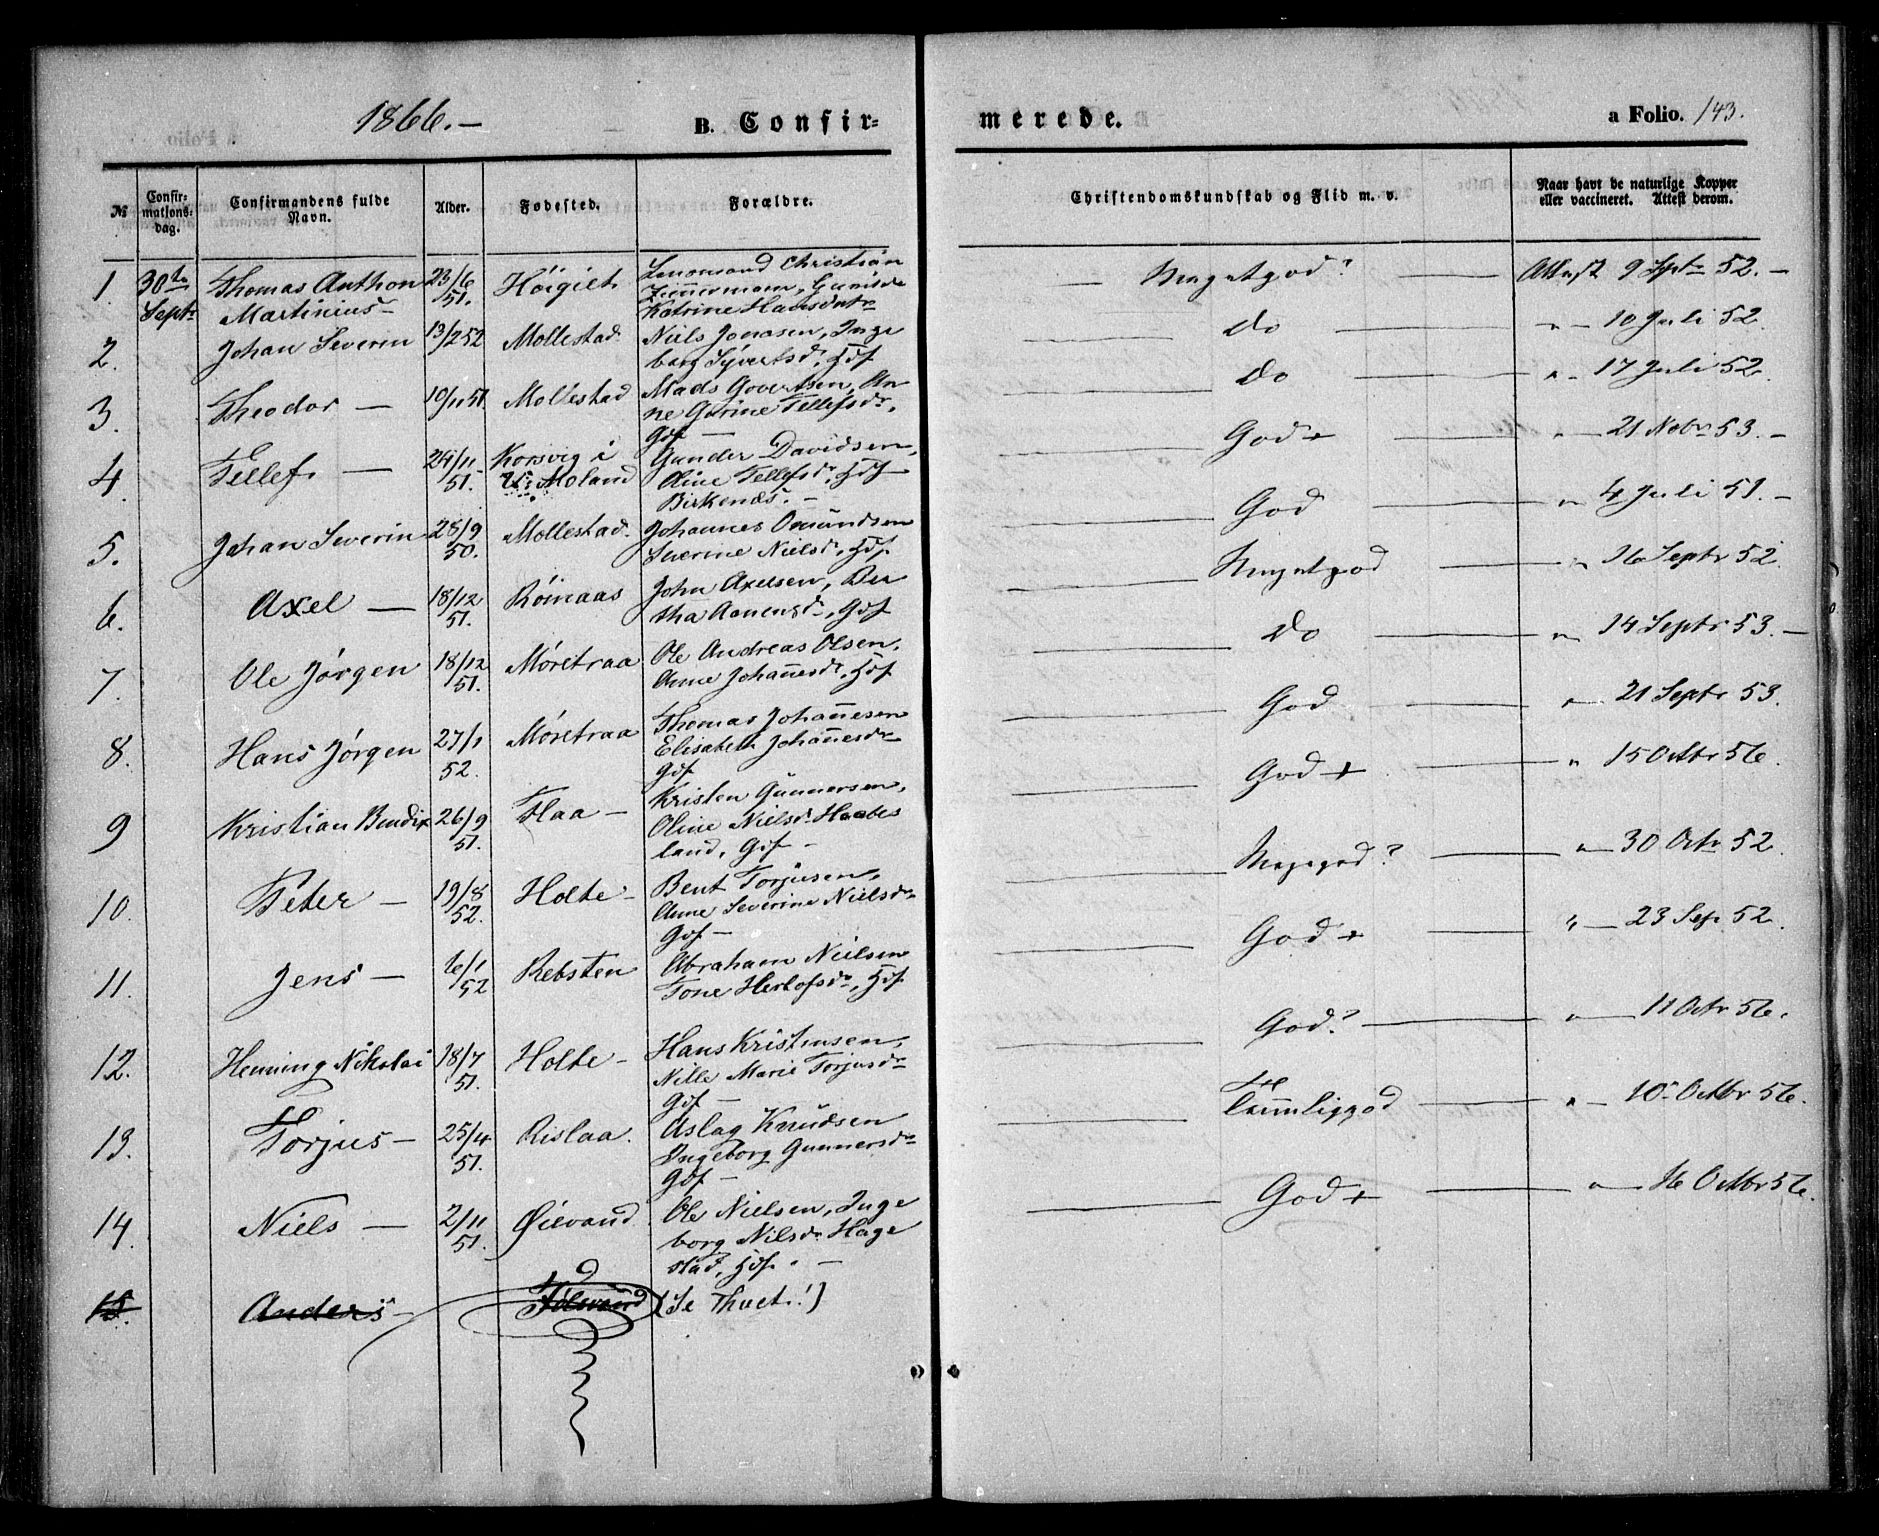 1866.-
B. Confir-
merede.
a Folio. 143.
№
Confir-
mations-
dag.
Confirmandens fulde
Navn.
Alder.
Fødested.
Forældre.
Christendomskundskab og Flid m. v.
Naar havt de naturlige Kopper
eller vaccineret. Attest derom.
1. 30te Sept. Thomas Anthon Martinius - 23/6 51. Høigilt Christian Zimmermann, Gunilde Katrine Hansdatr Megetgod? Attest 9 Sptr 52. -
2. Johan Severin 13/2 52 Mollestad. Niels Jonasen, Inge borg Syvertsdr, Gdf Do " - 10 Juli 52.
3. Theodor - 10/11 51 Mollestad Mads Govertsen, An ne Gurine Tellefsdr, Gdf - Do " - 17 Juli 52.
4. Tellef - 24/11 51. Korsvig i V. Moland Gunder Davidsen, Oline Tellefsdr, Gdf Birkenæs. - God + " - 21 Nobr 53. -
5. Johan Severin 28/9 50. Mollestad. Johannes Omundsen Severine Nielsdr, Gdf. God " - 4 Juli 51. -
6. Axel - 18/12 51. Røinaas John Axelsen, Ber tha Aanensdr, Gdf Megetgod " - 16 Septr 52
7. Ole Jørgen 18/12 51. Møretraa Ole Andreas Olsen, Anne Johannesdr, Gdf Do " - 14 Septr 53. -
8. Hans Jørgen 27/1 52. Møretraa Thomas Johannesen Elisabeth Johannesdr Gdf God " - 21 Septr 53.
9 Kristian Bendix 26/9 51. Flaa - Kristen Gunnersen, Oline Nielsdr Haabes land, Gdf - God + " 15 Octbr 56.
10. Peter - 19/8 52. Holte - Bent Torjusen, Anne Severine Nielsdr Gdf - Megegod? " - 30 Octr 52
11. Jens - 6/1 52 Rebsten Abraham Nielsen Tone Herlofsdr, Gdf God + " - 23 Sep. 52
12. Henning Nikolai 18/7 51. Holte - Hans Kristensen, Nille Marie Torjusdr Gdf - God? " - 11 Octr 56.
13. Torjus - 25/4 51. Rislaa. Aslag Knudsen Ingeborg Gunnersdr Gdf - Temmeliggod " - 10 Octbr 56.
14. Niels - 2/11 51. Øievand Ole Nielsen, Inge borg Nilsdr Hage stad, Gdf. - God + " - 16 Octbr 56.
15. Anders - (Se Thvet!)